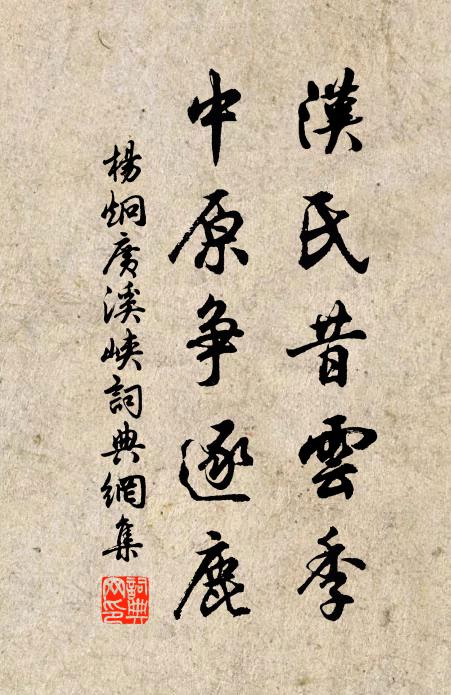 漢氏昔雲季
中原争逐鹿
楊炯廣溪峽詞典網集
詞典网印